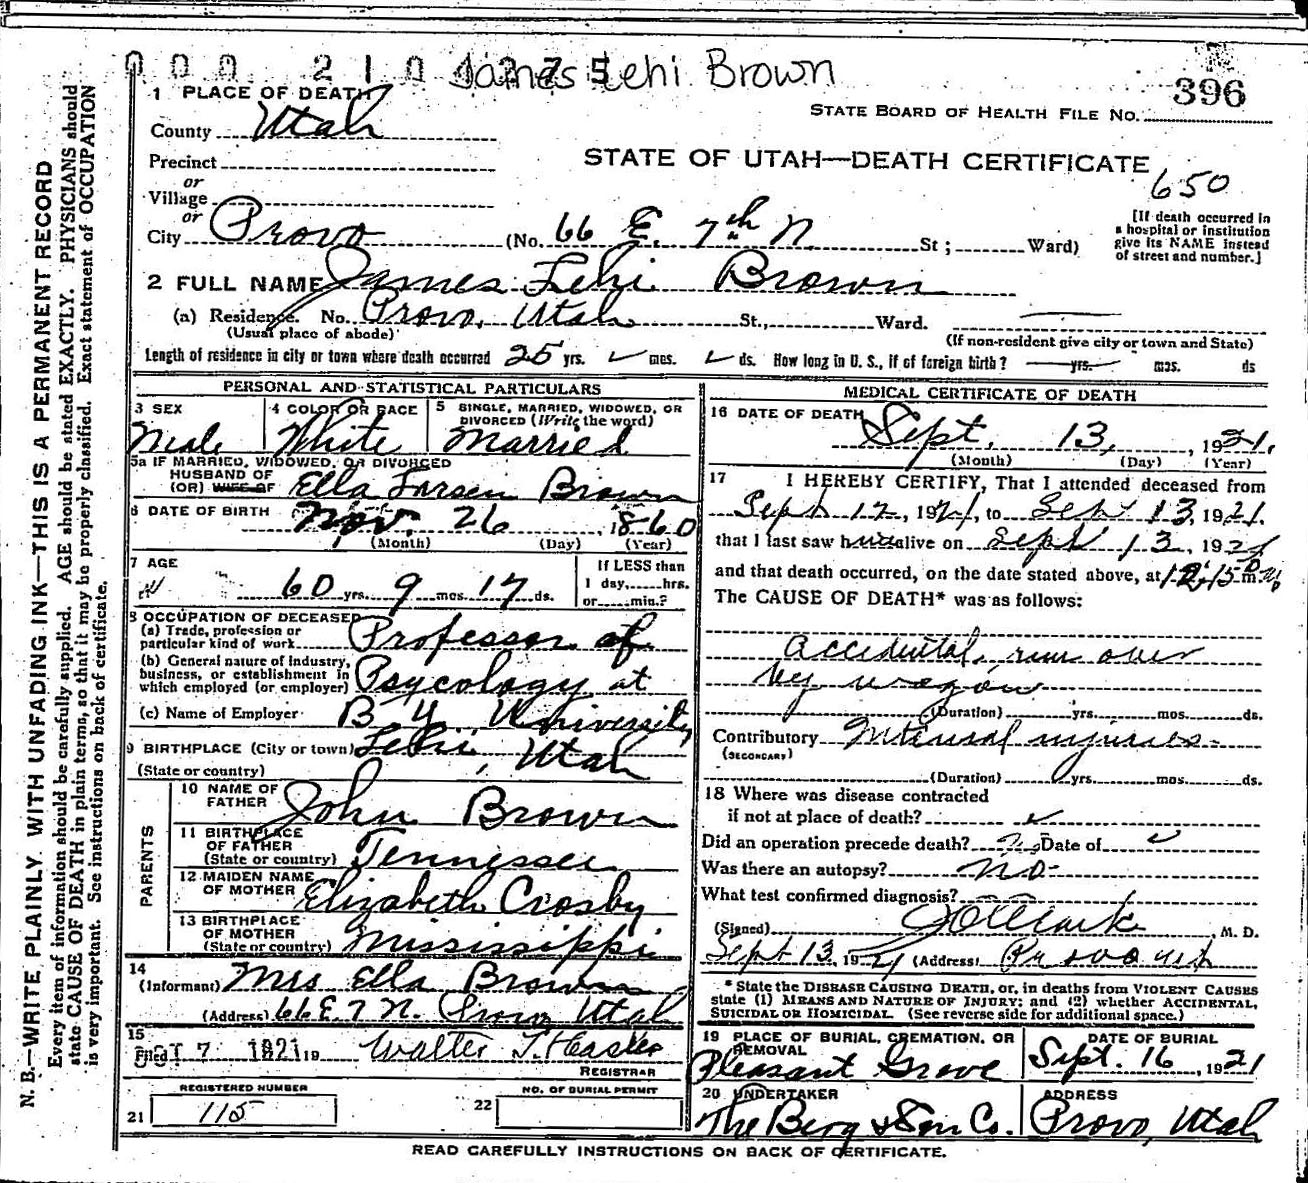 000 2101275 James Lehi Brown
1 PLACE OF DEATH
396
STATE BOARD OF HEALTH FILE No.
County Utah
STATE OF UTAH—DEATH CERTIFICATE
Precinct
650
or
Village
or
City Provo (No. 66 E. 7th N. St ; Ward)
[If death occurred in
a hospital or institution
give its NAME instead
of street and number.]
2 FULL NAME James Lehi Brown
(a) Residence. No. Provo, Utah St., Ward.
(Usual place of abode)
(If non-resident give city or town and State)
Length of residence in city or town where death occurred 25 yrs. ✓ mos. ✓ ds. How long in U. S., if of foreign birth? — yrs. — mos. ds
PERSONAL AND STATISTICAL PARTICULARS
3 SEX
Male
4 COLOR OR RACE
White
5 SINGLE, MARRIED, WIDOWED, OR
DIVORCED (Write the word)
Married
5a IF MARRIED, WIDOWED, OR DIVORCED
HUSBAND OF
(OR) WIFE OF Ella Larsen Brown
6 DATE OF BIRTH Nov. 26, 1860
(Month) (Day) (Year)
7 AGE
60 yrs. 9 mos. 17 ds.
If LESS than
1 day, hrs.
or min.?
8 OCCUPATION OF DECEASED
(a) Trade, profession or
particular kind of work Professor of
(b) General nature of industry,
business, or establishment in
which employed (or employer) Psycology at
(c) Name of Employer B Y University
9 BIRTHPLACE (City or town) Lehi, Utah
(State or country)
PARENTS
10 NAME OF
FATHER John Brown
11 BIRTHPLACE
OF FATHER
(State or country) Tennessee
12 MAIDEN NAME
OF MOTHER Elizabeth Crosby
13 BIRTHPLACE
OF MOTHER
(State or country) Mississippi
14
(Informant) Mrs Ella Brown
(Address) 66 E 7 N. Provo Utah
15
Filed OCT 7 1921 19 Walter T. Hasler
REGISTRAR
REGISTERED NUMBER
21 115
NO. OF BURIAL PERMIT
22
MEDICAL CERTIFICATE OF DEATH
16 DATE OF DEATH Sept. 13, 1921.
(Month) (Day) (Year)
17 I HEREBY CERTIFY, That I attended deceased from
Sept 12, 1921, to Sept 13, 1921.
that I last saw him alive on Sept 13, 1921
and that death occurred, on the date stated above, at 12.15 m.
The CAUSE OF DEATH* was as follows:
accidental, run over
by wagon
(Duration) yrs. mos. ds.
Contributory Internal injuries
(SECONDARY)
(Duration) yrs. mos. ds.
18 Where was disease contracted
if not at place of death? ✓
Did an operation precede death? No Date of ✓
Was there an autopsy? No-
What test confirmed diagnosis?
(Signed) M. D.
Sept 13, 1921 (Address) Provo Utah
* State the DISEASE CAUSING DEATH, or, in deaths from VIOLENT CAUSES
state (1) MEANS AND NATURE OF INJURY; and (2) whether ACCIDENTAL,
SUICIDAL OR HOMICIDAL. (See reverse side for additional space.)
19 PLACE OF BURIAL, CREMATION, OR
REMOVAL
Pleasant Grove
DATE OF BURIAL
Sept. 16, 1921
20 UNDERTAKER
The Berg & Son Co.
ADDRESS
Provo, Utah
READ CAREFULLY INSTRUCTIONS ON BACK OF CERTIFICATE.
N. B.—WRITE PLAINLY, WITH UNFADING INK—THIS IS A PERMANENT RECORD
Every item of information should be carefully supplied. AGE should be stated EXACTLY. PHYSICIANS should
state CAUSE OF DEATH in plain terms, so that it may be properly classified. Exact statement of OCCUPATION
is very important. See instructions on back of certificate.